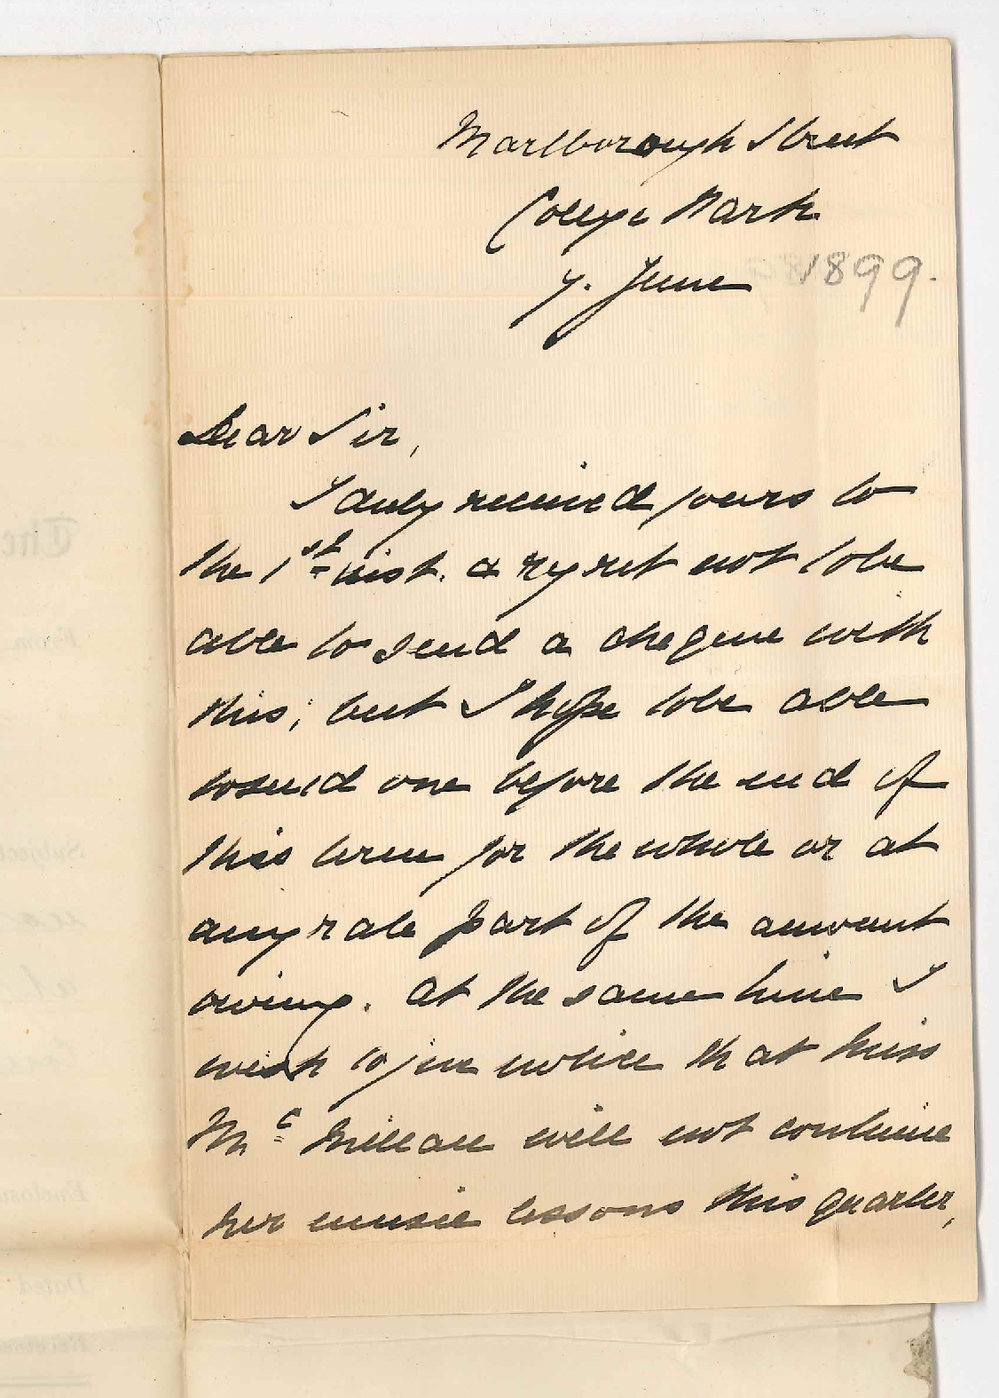 Marlborough Street
College Park
7. June 1899.
Dear Sir,
I duly received yours to
the 1st inst. & regret not to be
able to send a cheque with
this; but I hope to be able
to send one before the end of
this term for the whole or at
any rate part of the amount
owing. At the same time I
wish to give notice that Miss
Mc Millan will not continue
her music lessons this quarter,
The
From
Subject
Enclosu
Dated